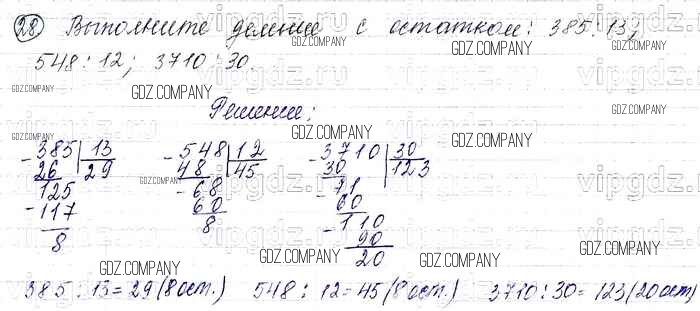 28 Выполните деление с остатком: 385:13;
548:12; 3710:30.
Решение:
-385 | 13 -548 | 12 -3710 | 30
26 29 48 45 30 123
125 -68 -71
-117 60 60
8 8 -110
90
20
385:13=29(8ост.) 548:12=45(8ост.) 3710:30=123(20ост,
vipgdz.ru
GDZ.COMPANY